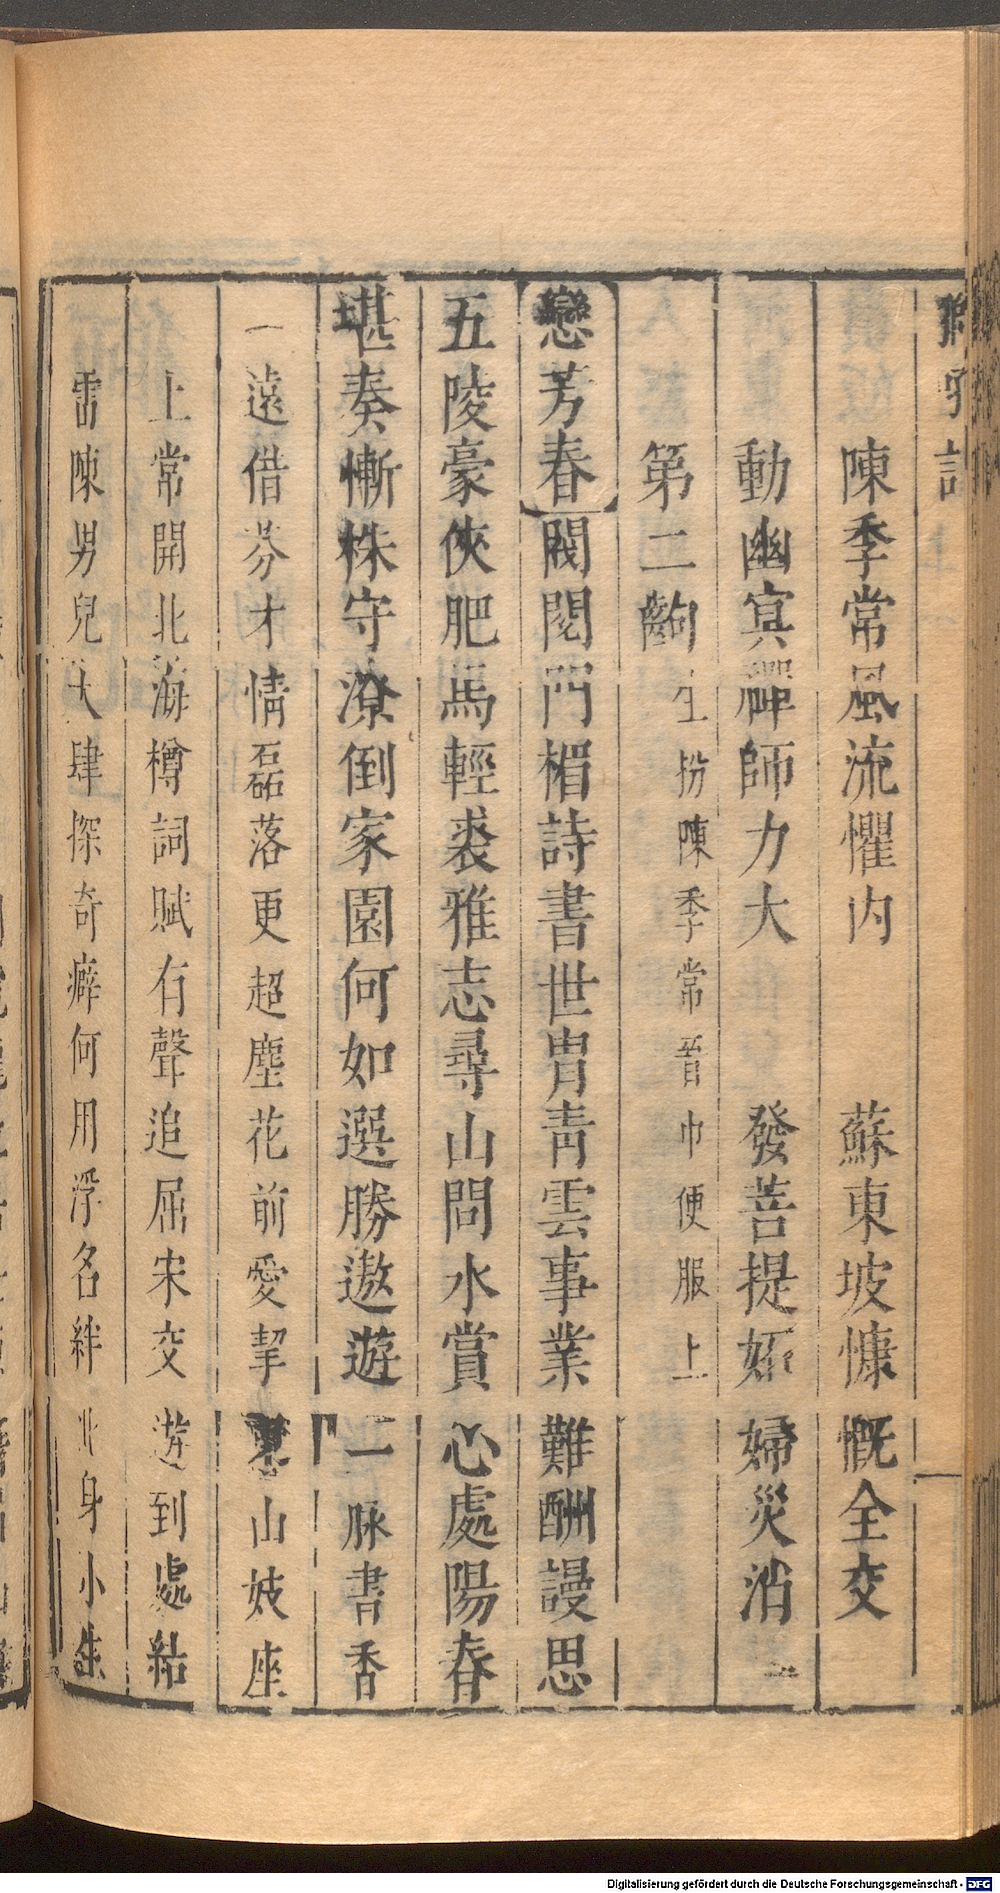 獅吼記
陳季常風流懼內 蘇東坡慷慨全交
動幽冥禪師力大 發菩提妬婦災消
第二齣 生扮陳季常晉巾便服上
戀芳春 閥閱門楣詩書世胄青雲事業難酬謾思
五陵豪俠肥馬輕裘雅志尋山問水賞心處陽春
堪奏慚株守潦倒家園何如選勝遨遊一脉書香
遠借芬才情磊落更超塵花前愛挈 山妓座
上常開北海樽詞賦有聲追屈宋交遊到處結
雷陳男兒大肆探奇癖何用浮名絆此身小生
Digitalisierung gefördert durch die Deutsche Forschungsgemeinschaft - DFG